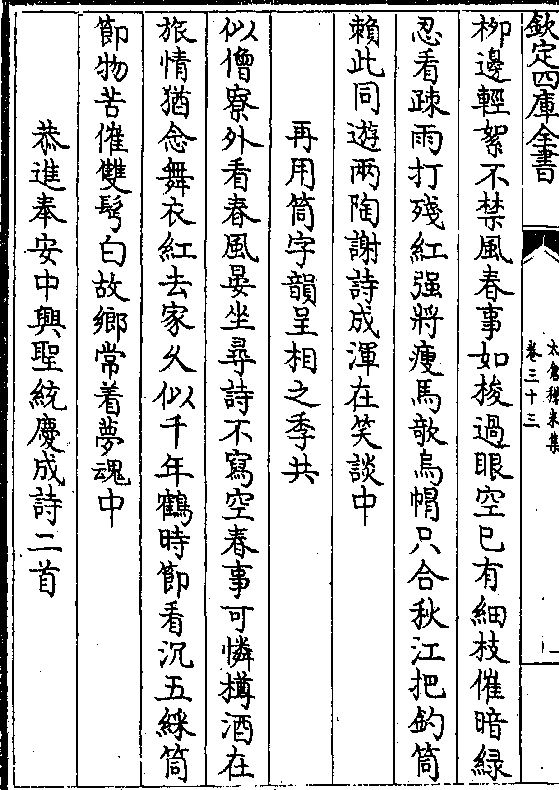 欽定四庫全書
太倉稊米集
卷三十三
柳邊輕絮不禁風春事如梭過眼空已有細枝催暗綠
忍看疎雨打殘紅强將瘦馬欹烏㡌只合秋江把釣筒
賴此同遊兩陶謝詩成渾在笑談中
再用筒字韻呈相之季共
似僧寮外看春風晏坐尋詩不寫空春事可憐樽酒在
旅情猶念舞衣紅去家久似千年鶴時節看沉五綵筒
節物苦催雙鬂白故鄉常着夢魂中
恭進奉安中興聖統慶成詩二首